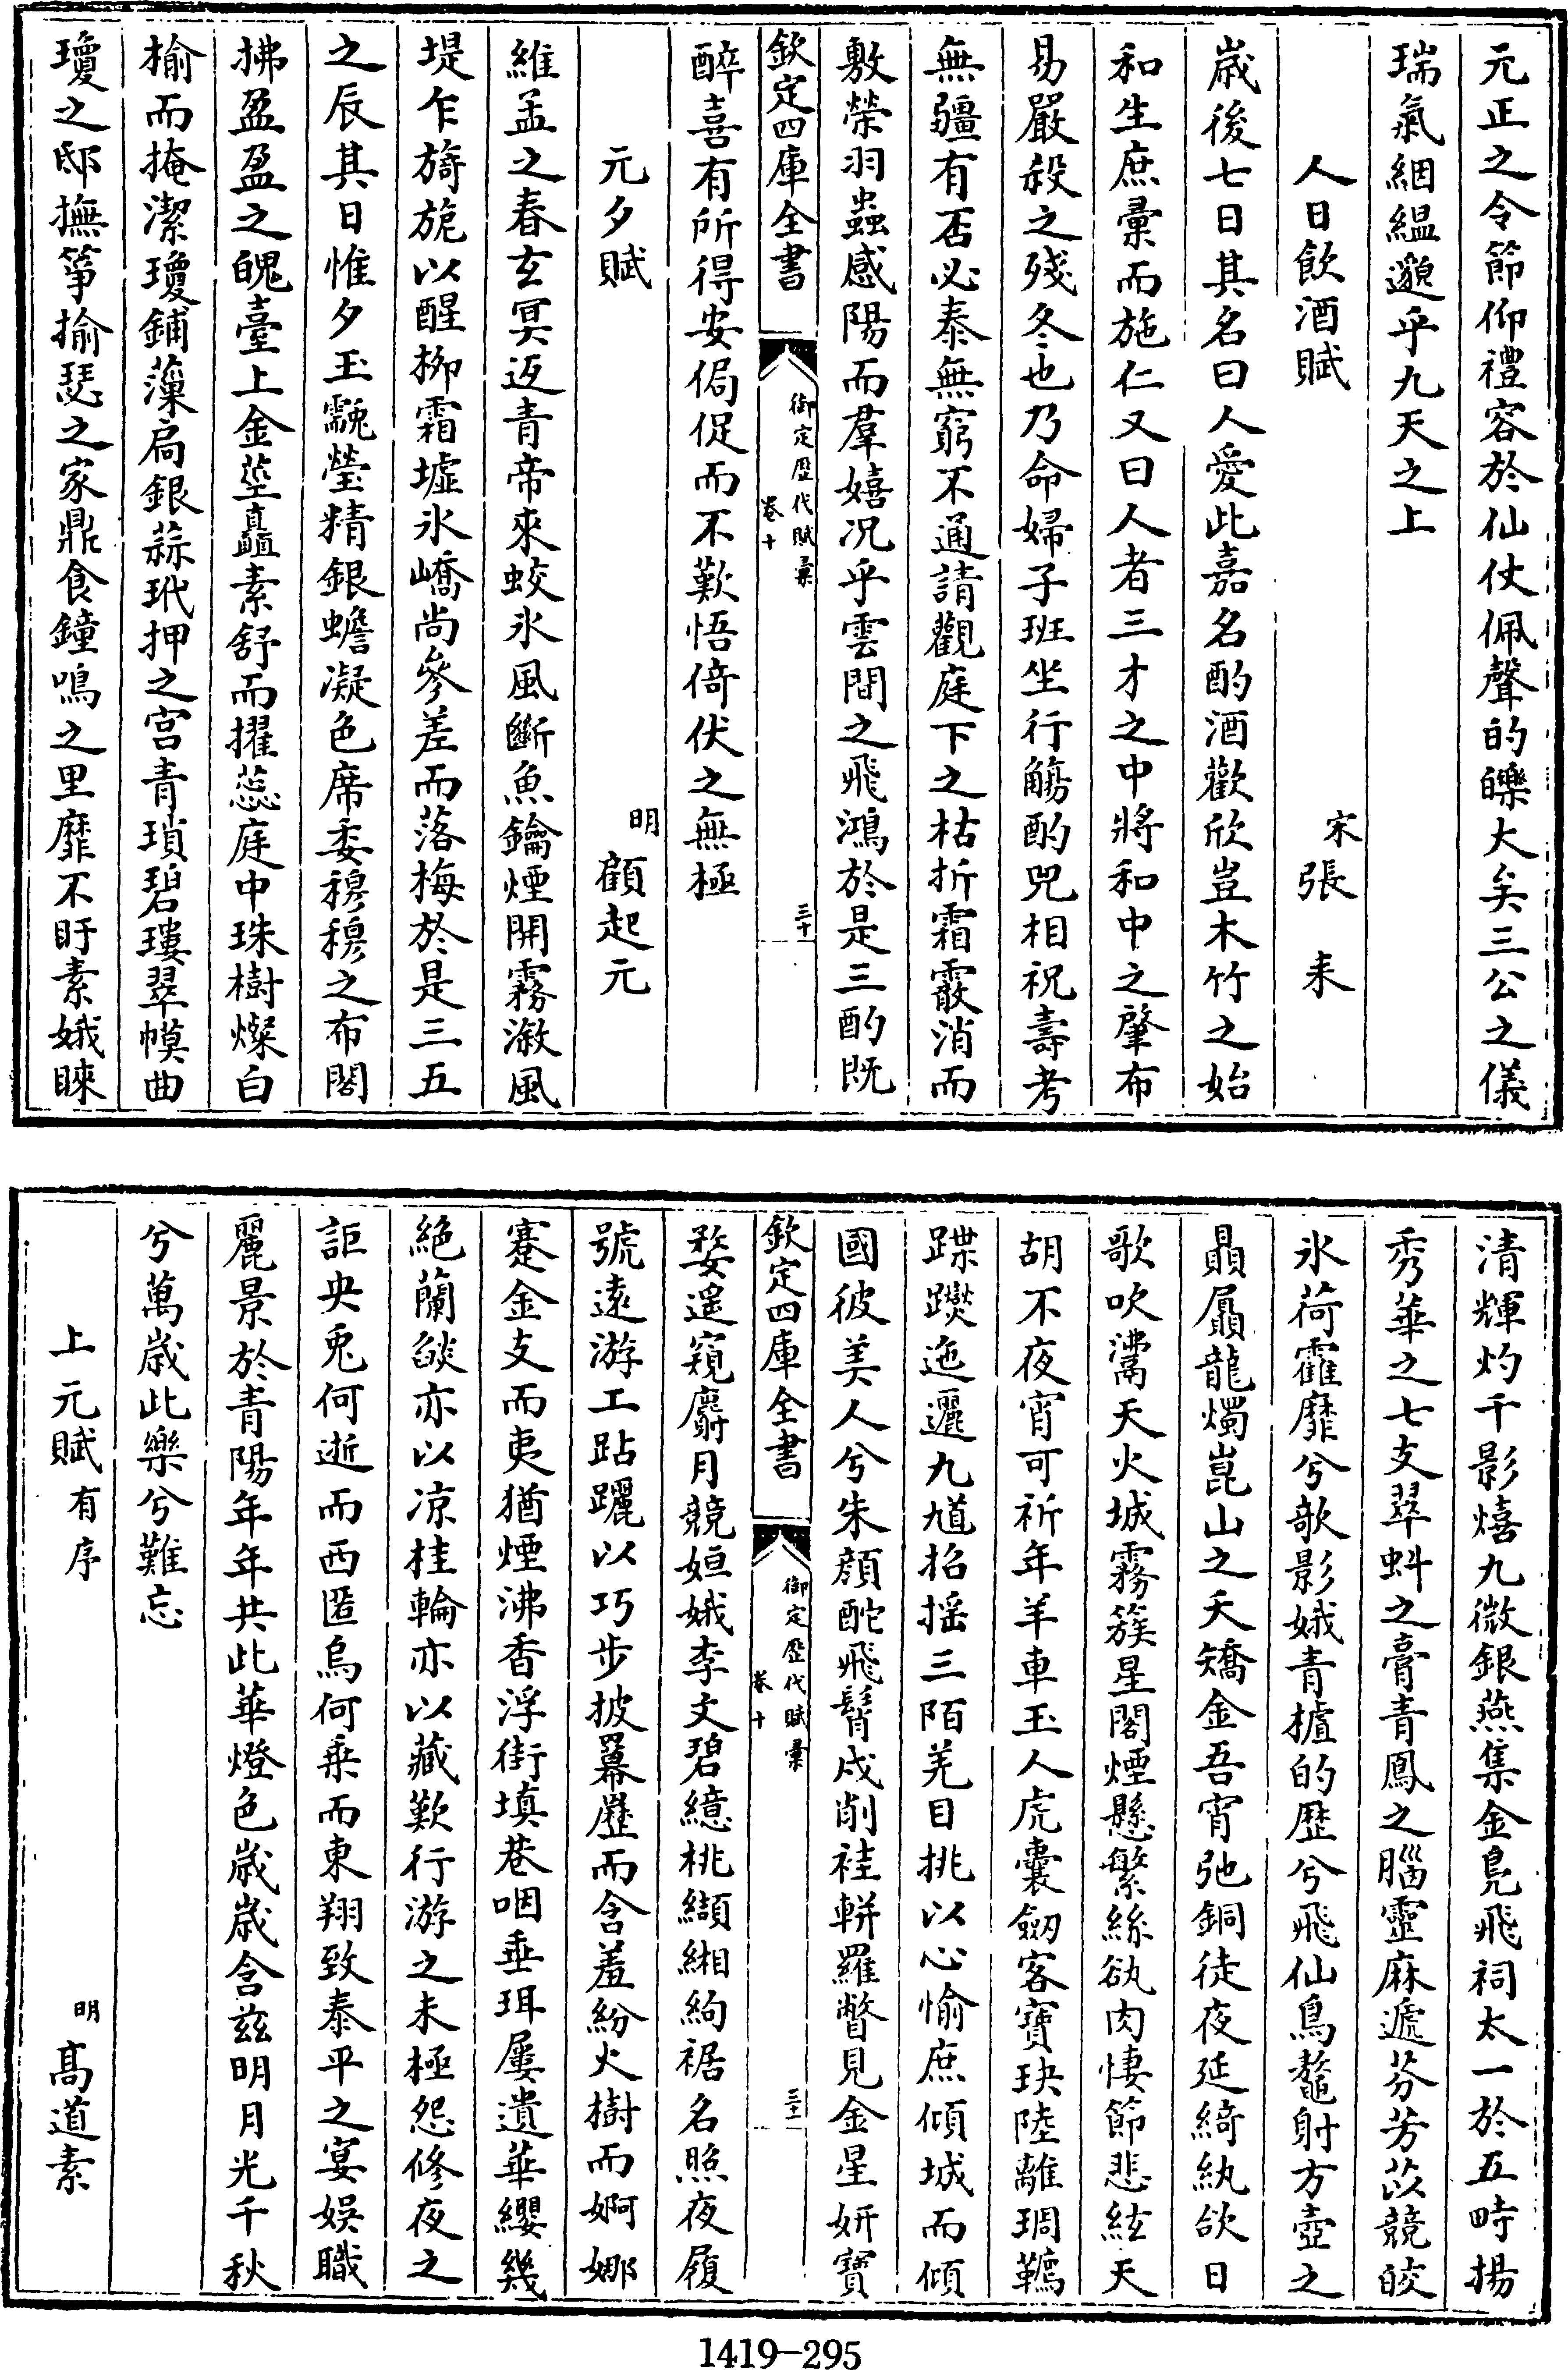 元正之令節仰禮容於仙仗佩聲的皪大矣三公之儀
瑞氣絪縕邈乎九天之上
人日飲酒賦
宋張耒
歲後七日其名曰人愛此嘉名酌酒歡欣豈木竹之始
和生庶彚而施仁又曰人者三才之中將和中之肇布
易嚴殺之殘冬也乃命婦子班坐行觴酌兕相祝壽考
無疆有否必泰無窮不通請觀庭下之枯折霜霰消而
敷榮羽蟲感陽而羣嬉况乎雲間之飛鴻於是三酌既
欽定四庫全書
御定歷代賦彙
卷十
三十
醉喜有所得安侷促而不歎悟倚伏之無極
元夕賦
明顧起元
維孟之春玄冥返青帝來蛟氷風斷魚鑰煙開霧漵風
堤乍旖旎以醒柳霜墟氷嶠尚參差而落梅於是三五
之辰其日惟夕玉靝瑩精銀蟾凝色席委穆穆之布閣
拂盈盈之魄臺上金莖矗素舒而擢蕊庭中珠樹燦白
榆而掩潔瓊鋪藻扄銀蒜玳押之宮青瑣碧㻻翠幙曲
瓊之邸撫箏揄瑟之家鼎食鐘鳴之里靡不盱素娥睞
清輝灼千影熺九微銀燕集金鳬飛祠太一於五畤揚
秀華之七支翠蚪之膏青鳳之腦靈麻遞芬芳苡競皎
氷荷靃靡兮歌影娥青攎的歷兮飛仙鳥鼇射方壺之
贔屭龍燭崑山之夭矯金吾宵弛銅徒夜延綺紈欱日
歌吹灊天火城霧簇星閣煙懸繁絲紈肉悽節悲絃天
胡不夜宵可祈年羊車玉人虎囊劒客寶玦陸離琱韉
蹀躞迤邐九馗招摇三陌羌目挑以心愉庶傾城而傾
國彼美人兮朱顔酡飛髾戍削袿軿羅瞥見金星妍寶
欽定四庫全書
御定歷代賦彙
卷十
三十一
婺遙窺麝月競姮娥李文碧繶桃纈緗絢裾名照夜履
號遠游工跕躧以巧步披羃䍥而含羞紛火樹而婀娜
蹇金支而夷猶煙沸香浮街填巷咽垂珥屢遺華纓幾
絶蘭燄亦以凉桂輪亦以藏歎行游之未極怨修夜之
詎央兎何逝而西匿烏何乘而東翔致泰平之宴娱職
麗景於青陽年年共此華燈色歲歲含兹明月光千秋
兮萬歲此樂兮難忘
上元賦有序
明高道素
1419-295